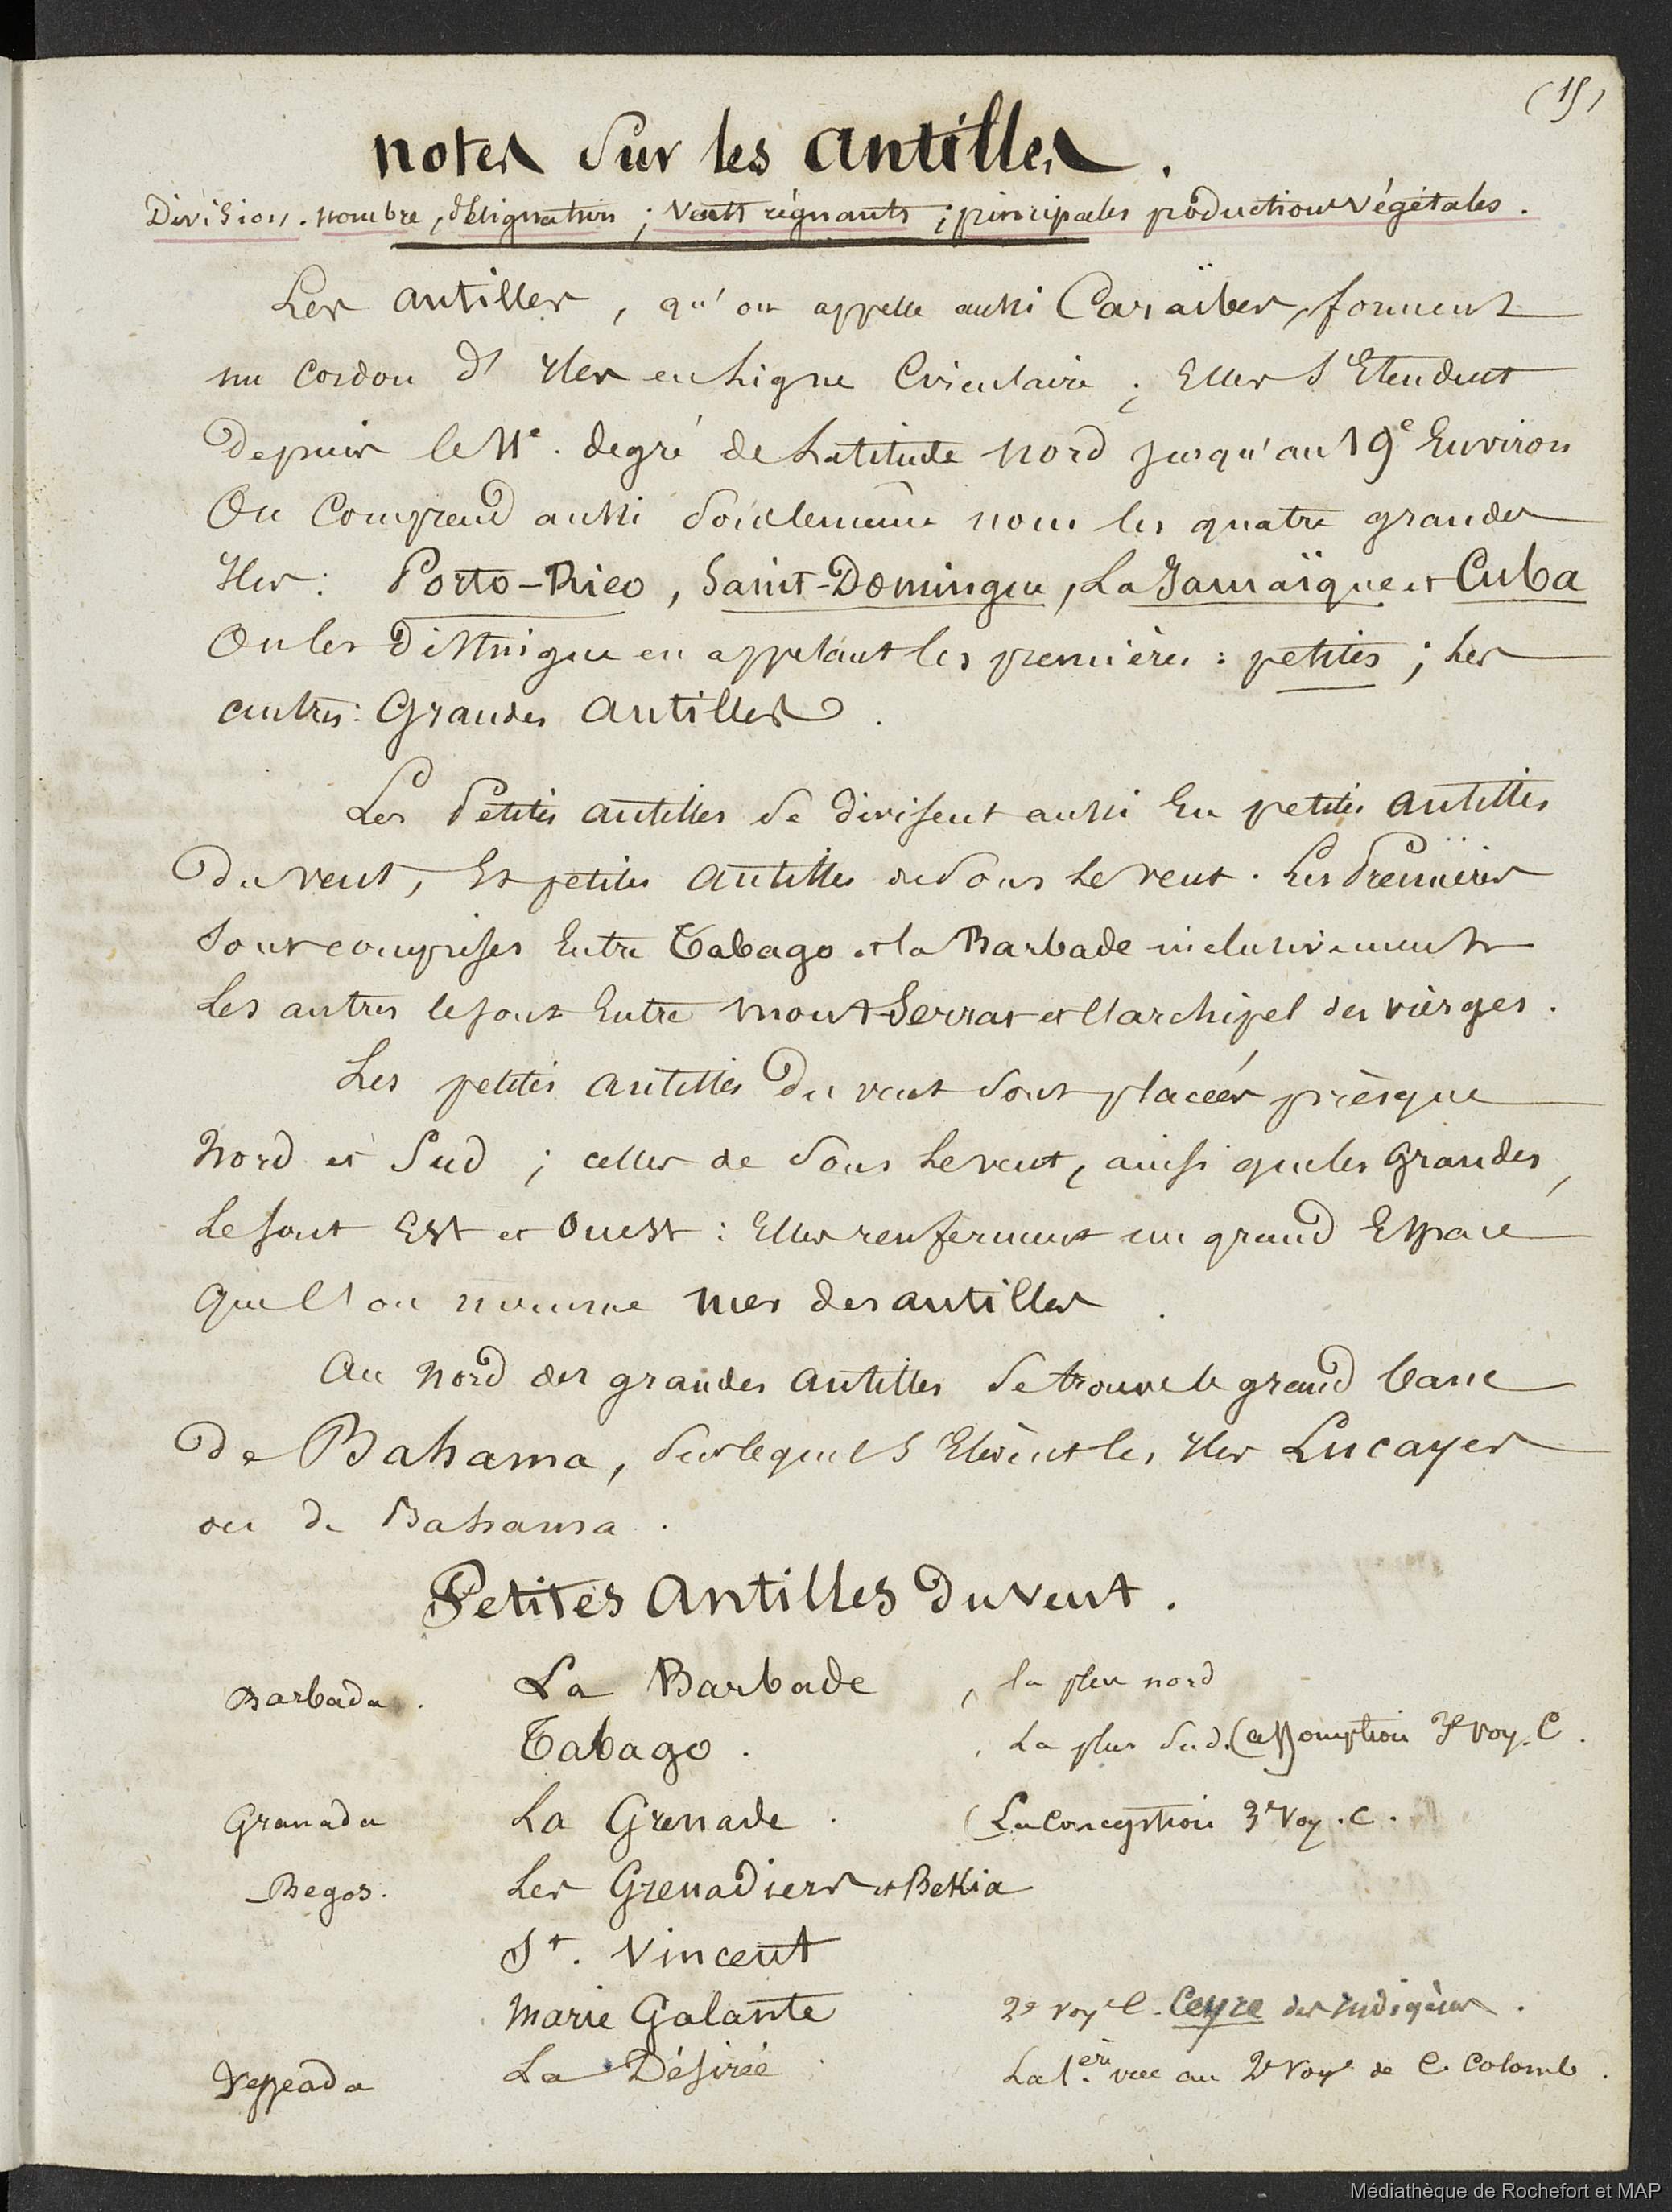 (15)
notes sur les antilles.
Division. nombre, désignation ; vents régnants ; principales productions végétales.
Les antilles, qu'on appelle aussi Caraïbes, forment
un cordon d'Iles en Ligne Circulaire ; Elles s'Etendent
Depuis le 11e. degré de Latitude nord jusqu'au 19e Environ
On Comprend aussi sous le même nom les quatre grandes
Iles : Porto-Rico, Saint-Domingue, La Jamaïque et Cuba
On les Distingue en appelant les premières : petites ; Les
autres : Grandes antilles.
Les Petites antilles se divisent aussi En petites antilles
Du vent, Et petites antilles de sous Le vent. Les Premières
sont comprises Entre Tabago et la Barbade inclusivement
Les autres le sont Entre mont Serrat et l'archipel des vièrges.
Les petites antilles Du vent sont placées prèsque
Nord et Sud ; celles de sous Le vent, ainsi que les Grandes,
Le sont Est et Ouest : Elles renferment un grand Espace
que l'on nomme mer des antilles.
Au Nord des grandes antilles se trouve le grand banc
De Bahama, sur lequel s'Elèvent les Iles Lucayes
ou de Bahama.
Petites antilles Du vent.
Barbada. La Barbade, la plus nord
Tabago. La plus sud. (assomption 3e voy. C.
Granada La Grenade. (La Conception 3e Voy. C.
Begos. Les Grenadiers et Bekia
St. Vincent
Marie Galante 2e voy. C. Ceyre des indigènes.
La Désirée La 1ère vue au 2e voye de C. Colomb.
Médiathèque de Rochefort et MAP